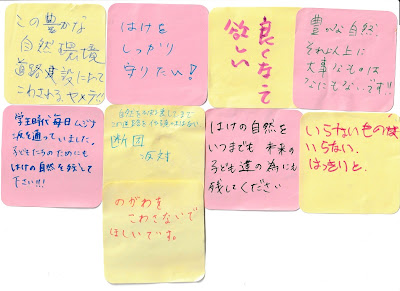 この豊かな
自然環境
道路建設によって
こわされる、ヤメテ!!
はけを
しっかり
守りたい!
良くなって
欲しい
豊かな自然。
それ以上に
大事なものは
なにもないです!!
学生時代毎日ムジナ
坂を通っていました。
子どもたちのためにも
はけの自然を残して
下さい!!!
自然を破壊してまで
この道路を作る意味はない
断固
反対
はけの自然を
いつまでも 未来の
子ども達の為にも
残してください
いらないものは
いらない。
はっきりと.
のがわを
こわさないで
ほしいです。